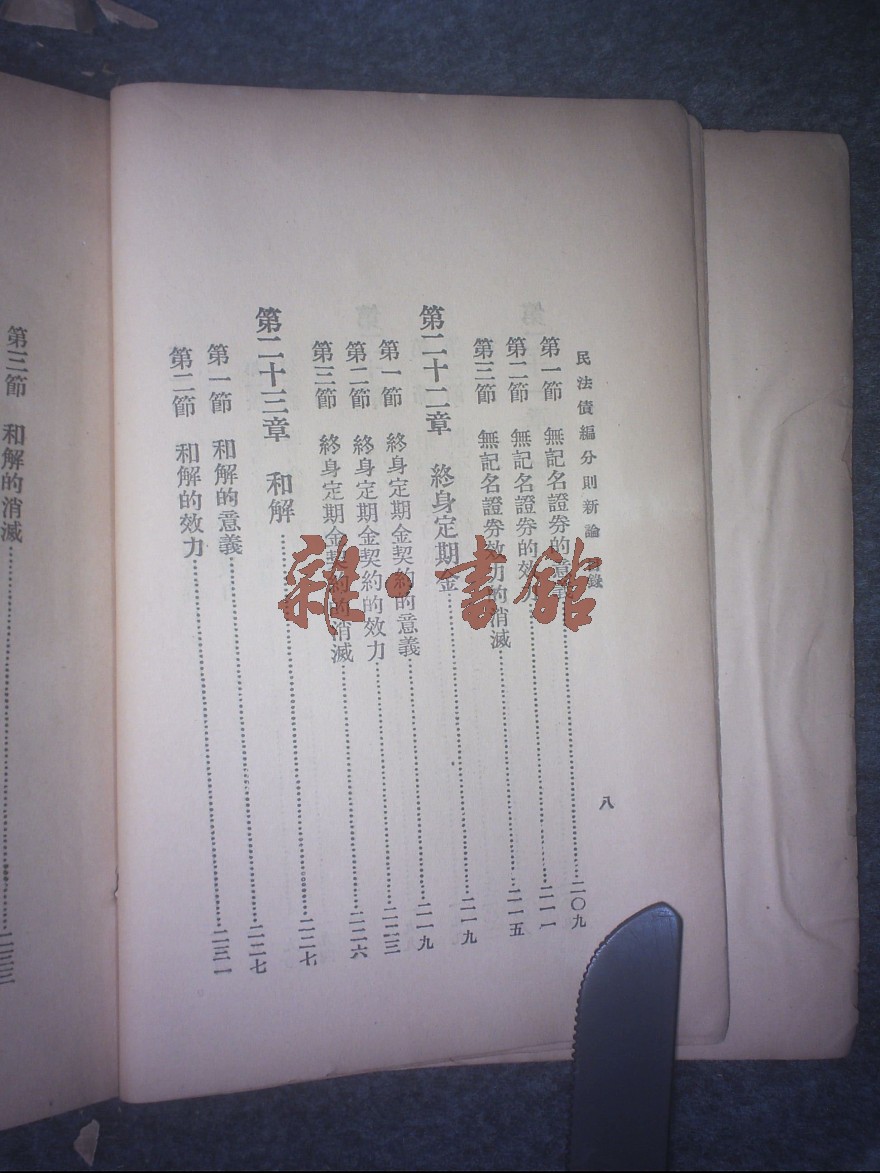 民法債編分則新論　目錄　八
第一節　無記名證券的意義……二〇九
第二節　無記名證券的效力……二一一
第三節　無記名證券效力的消滅……二一五
第二十二章　終身定期金……二一九
第一節　終身定期金契約的意義……二一九
第二節　終身定期金契約的效力……二二三
第三節　終身定期金契約的消滅……二二六
第二十三章　和解……二二七
第一節　和解的意義……二二七
第二節　和解的效力……二三一
第三節　和解的消滅……二三三
雜·書館